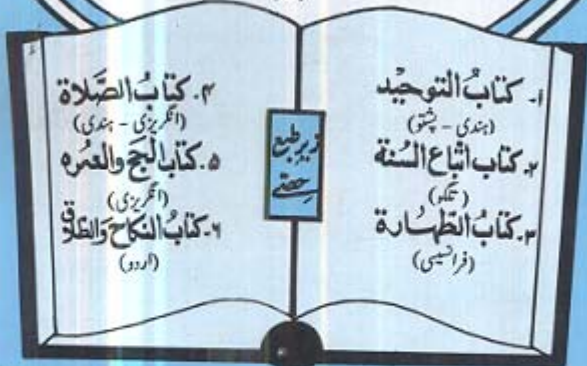 ۱۔ کتابُ التوحیْد
(ہندی - پشتو)
۲۔ کتاب اتباع السُنۃ
(تلگو)
۳۔ کتابُ الطّہارۃ
(فرانسیسی)
زیر طبع
حصّے
۴۔ کتابُ الصّلاۃ
(انگریزی - ہندی)
۵۔ کتابُ الحج والعُمرہ
(انگریزی)
۶۔ کتابُ النکاح والطّلاق
(اردو)